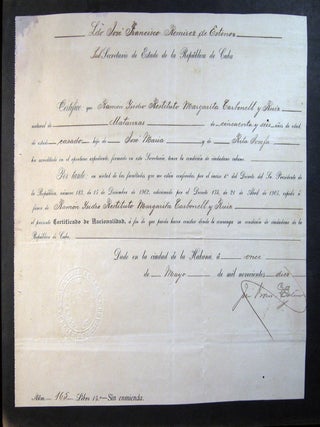 Ldo José Francisco Ramirez de Estenoz
Sub Secretario de Estado de la República de Cuba
Certifico: que Ramon Ysidro Restituto Margarito Carbonell y Ruiz
natural de Matanzas de cincuenta y seis años de edad, de
estado casado hijo de José Maria y de Rita Josefa
ha acreditado en el oportuno expediente, formado en esta Secretaría tener la condición de ciudadano cubano.
Por tanto en virtud de las facultades que me están conferidas por el inciso 6º del Decreto del Sr. Presidente de
la República, número 183, de 15 de Diciembre de 1902, adicionado por el Decreto 173, de 21 de Abril de 1905, expido á
favor de Ramon Ysidro Restituto Margarito Carbonell y Ruiz
el presente Certificado de Nacionalidad, á fin de que pueda hacer constar donde le convenga su condición de ciudadano de la
República de Cuba.
Dado en la ciudad de la Habana, á once
de Mayo de mil novecientos diez
Núm. 165 Libro 14º Sin enmienda.